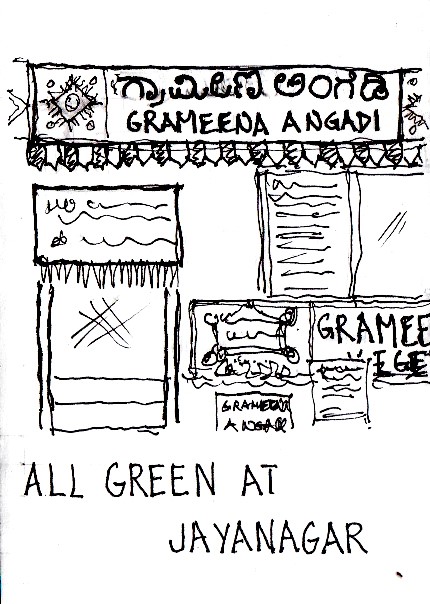 ಗ್ರಾಮೀಣ ಅಂಗಡಿ
GRAMEENA ANGADI
GRAMEE
EGE
GRAMEENA
ANGADI
ALL GREEN AT
JAYANAGAR